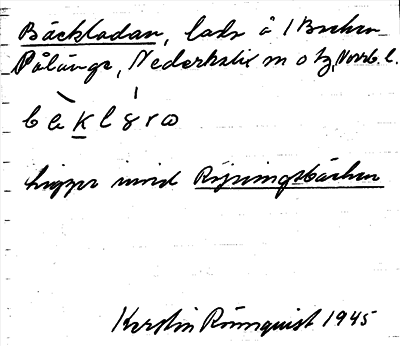 Bäckladan, lada å 1 Backen
Pålänge, Nederkalix sn o tg, Norrb. l.
ligger invid Rijningsbäcken
Kerstin Rönnquist 1945